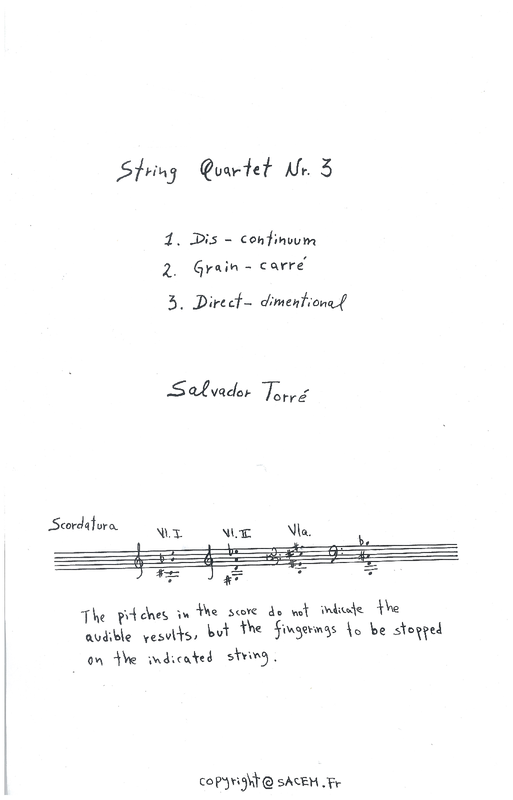 String Quartet Nr. 3
1. Dis - continuum
2. Grain - carré
3. Direct - dimentional
Salvador Torré
Scordatura
Vl. I Vl. II Vla.
The pitches in the score do not indicate the
audible results, but the fingerings to be stopped
on the indicated string.
copyright@SACEM.Fr